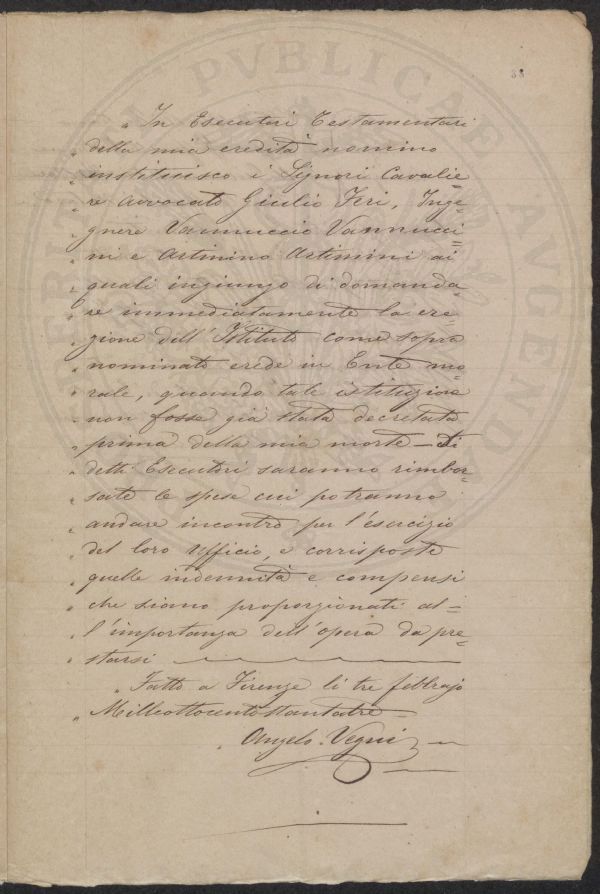 38
„ In Esecutori Testamentari
„ della mia eredità nomino
„ instituisco i Signori Cavalie=
„ re Avvocato Giulio Feri, Inge=
„ gnere Vannuccio Vannucci=
„ ni e Artimino Artimini ai
„ quali ingiungo di domanda=
„ re immediatamente la ere=
„ zione dell'Istituto come sopra
„ nominato erede in Ente mo=
„ rale, quando tale istituzione
„ non fosse già stata decretata
„ prima della mia morte — Ai
„ detti Esecutori saranno rimbor=
„ sate le spese cui potranno
„ andare incontro per l'esercizio
„ del loro Ufficio, e corrisposte
„ quelle indennità e compensi
„ che siano proporzionati al=
„ l'importanza dell'opera da pre=
„ starsi
„ Fatto a Firenze li tre febbrajo
„ Milleottocentosettantatre
„ Angelo Vegni